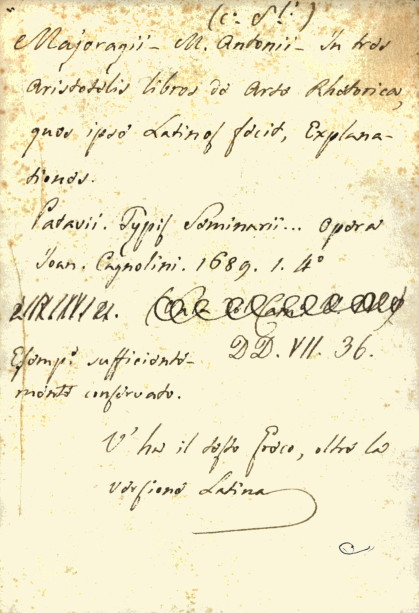 (c. S.l.)
Majoragii - M. Antonii - In tres
Aristotelis libros de Arte Rhetorica,
quos ipse Latinos fecit, Explana-
tiones.
Patavii. Typis Seminarii... Opera
Ioan. Cagnolini. 1689. 1. 4°
DD. VII. 36.
Esemp.e sufficiente-
mente conservato.
V' ha il testo Greco, oltre la
versione Latina